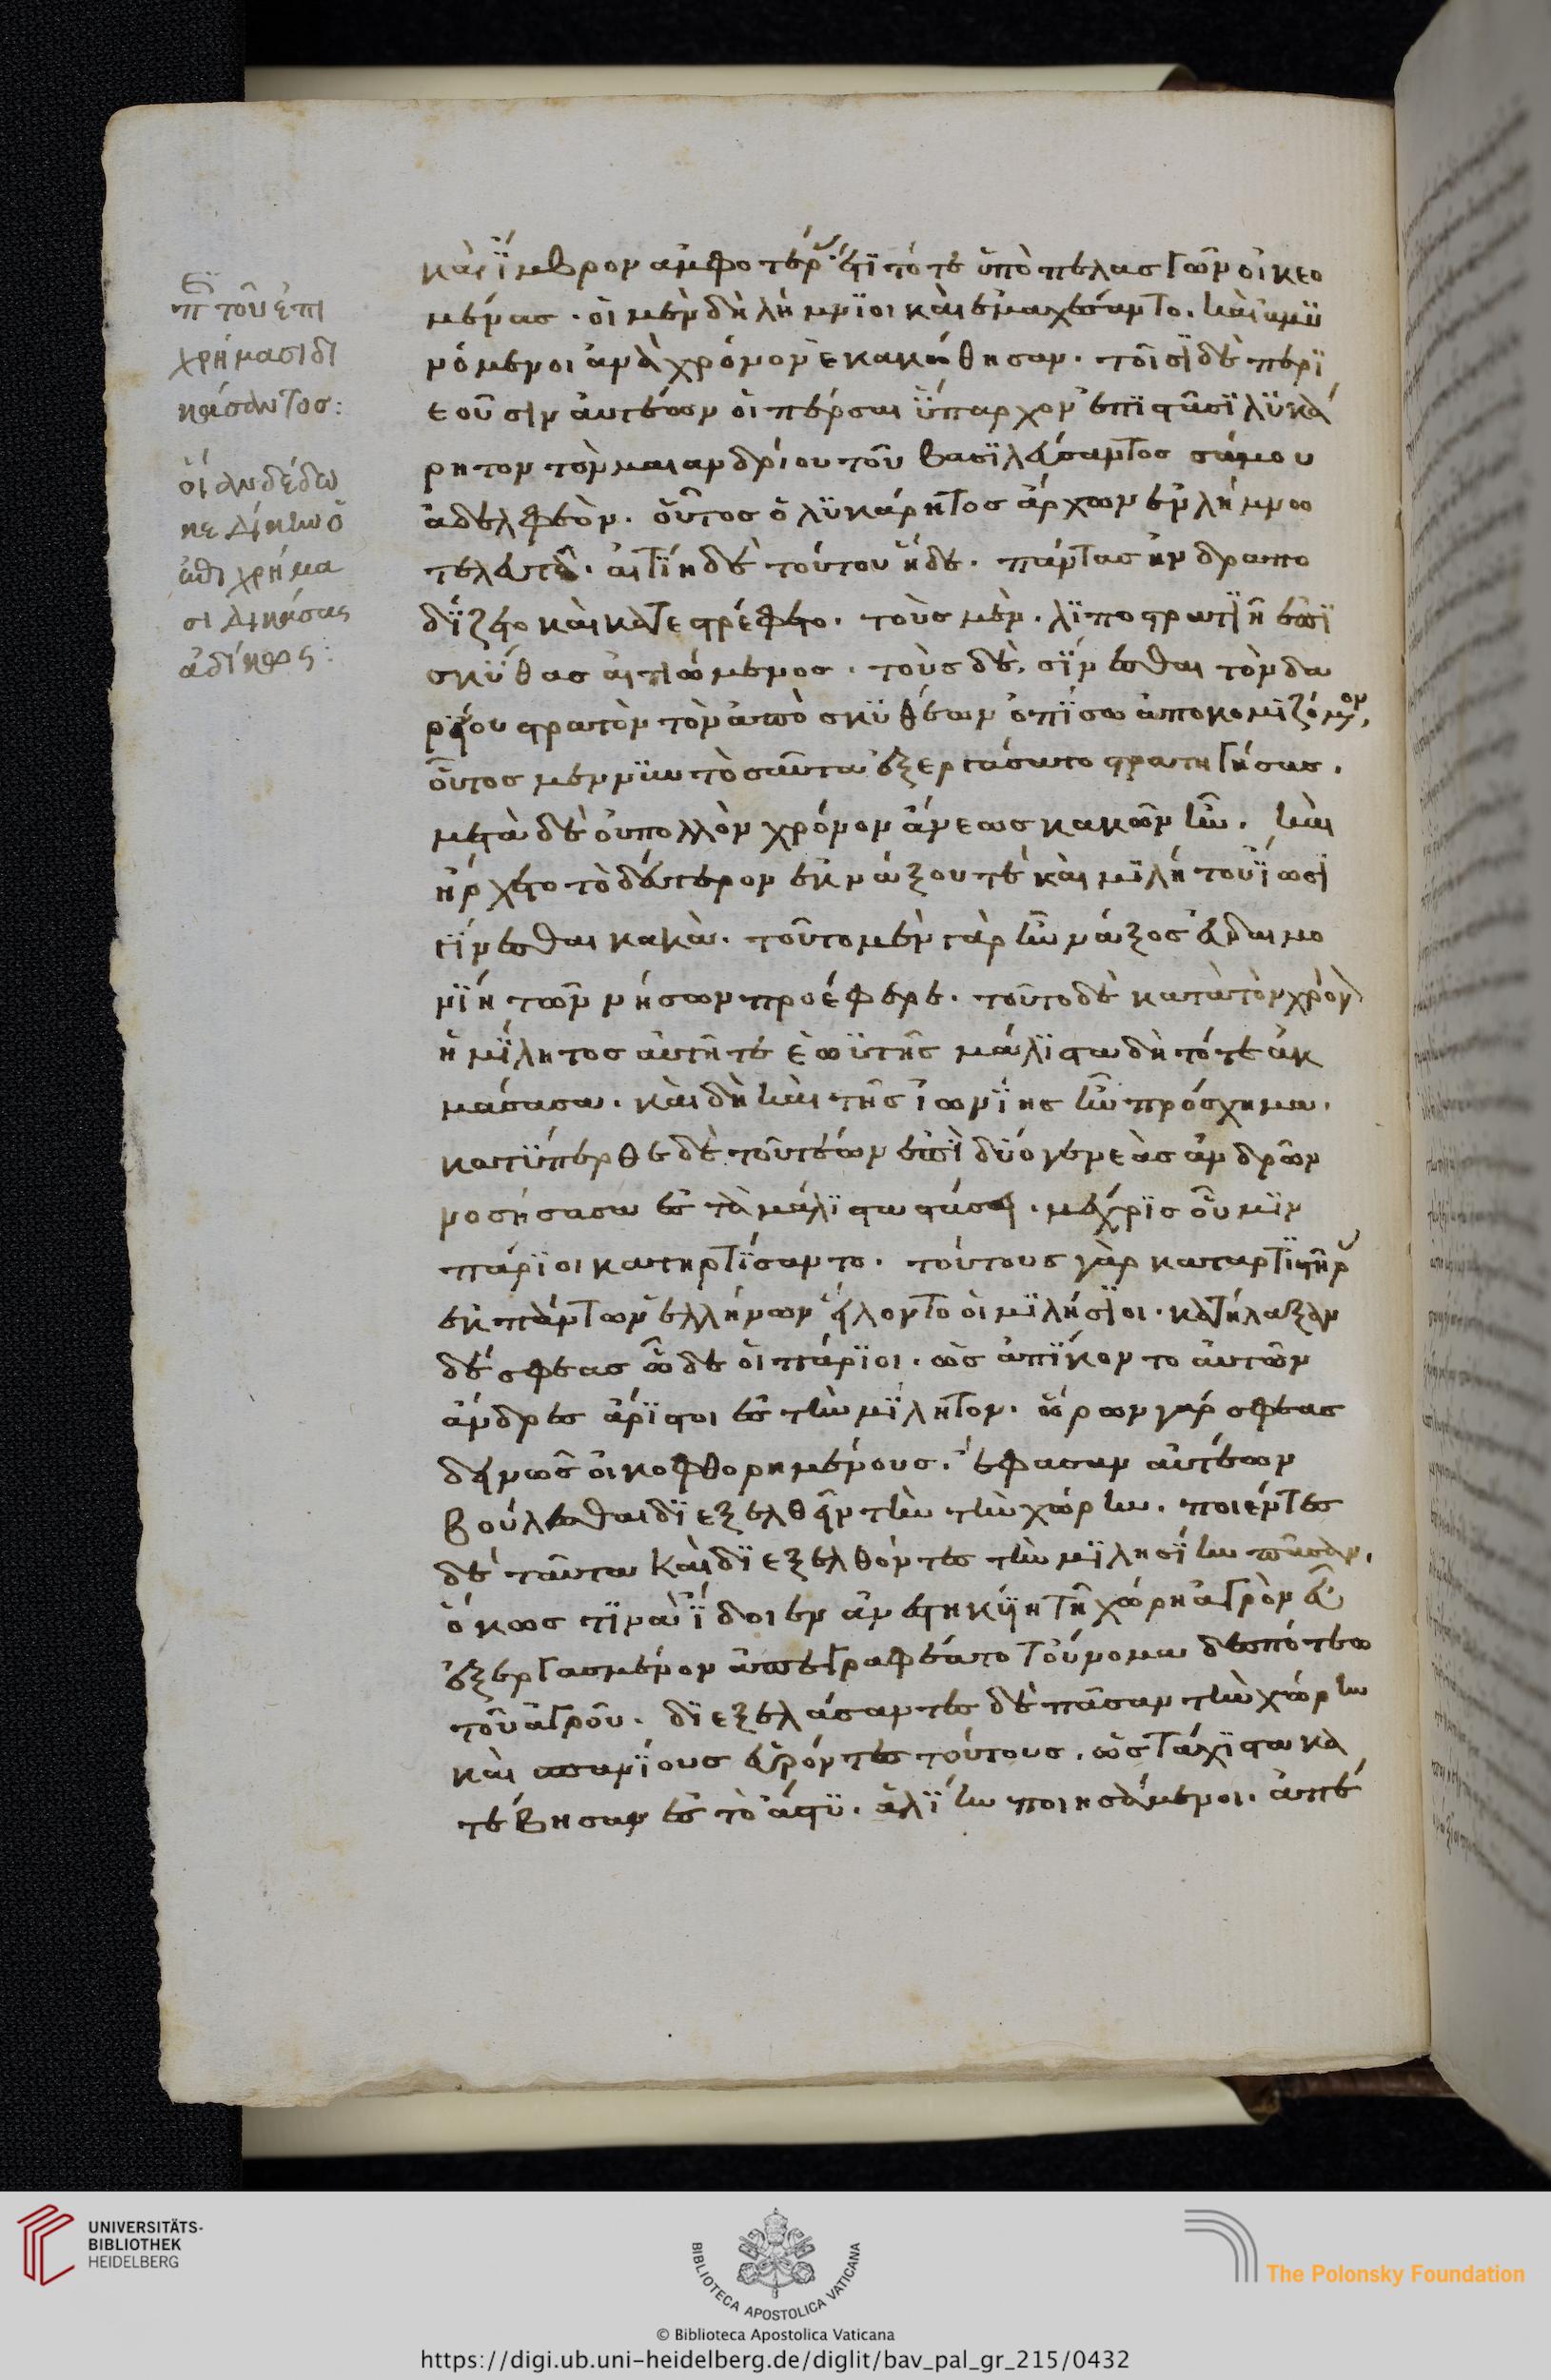 π τοῦ ἐπὶ
χρήμασι δι
κάσαντος:
χρήμα
ἀδίκως:
καὶ ἴμβρον ἀμφοτέρας ἔτι τότε ὑπὸ πελασγῶν οἰκεο
μένας. οἱ μὲν δὴ λήμνιοι καὶ ἐμαχέσαντο. καὶ ἀμυ
νόμενοι ἀνὰ χρόνον ἐκακώθησαν. τοῖσι δὲ περι
εοῦσιν αὐτέων οἱ πέρσαι ὕπαρχον ἐπιστᾶσι λυκά
ρητον τὸν μαιανδρίου τοῦ βασιλεύσαντος σάμου
ἀδελφεόν. οὗτος ὁ λυκάρητος ἄρχων ἐν λήμνω
τελευτᾶ. αἰτίη δὲ τούτου ἥδε. πάντας ἠνδραπο
δίζετο καὶ κατεστρέφετο. τοὺς μὲν. λιποστρατίης ἐπὶ
σκύθας αἰτιώμενος. τοὺς δὲ, σίνεσθαι τὸν δα
ρείου στρατὸν τὸν ἀπὸ σκυθέων ὀπίσω ἀποκομιζόμενον.
οὗτος μέν νυν τοσαῦτα ἐξεργάσατο στρατηγήσας.
μετὰ δὲ οὐ πολλὸν χρόνον ἄνεως κακῶν ἦν. καὶ
ἤρχετο τὸ δεύτερον ἐκ νάξου τε καὶ μιλήτου ἴωσι
γίνεσθαι κακὰ. τοῦτο μὲν γὰρ ἦν νάξος εὐδαιμο
νίη τῶν νήσων προέφερε. τοῦτο δὲ κατὰ τὸν χρόνον
ἡ μίλητος αὐτή τε ἑωυτῆς μάλιστα δὴ τότε ἀκ
μάσασα. καὶ δὴ καὶ τῆς ἰωνίης ἦν πρόσχημα.
κατύπερθε δὲ τουτέων ἐπὶ δύο γενεὰς ἀνδρῶν
νοσήσασα ἐς τὰ μάλιστα στάσει. μέχρις οὗ μιν
πάριοι κατήρτισαν το. τούτους γὰρ καταρτιστῆρας
ἐκ πάντων ἑλλήνων εἵλοντο οἱ μιλήσιοι. κατήλαξαν
δέ σφεας ὧδε οἱ πάριοι. ὡς ἀπίκοντο αὐτῶν
ἄνδρες ἄριστοι ἐς τὴν μίλητον. ὥρων γάρ σφεας
δεινῶς οἰκοφθορημένους. ἔφασαν αὐτέων
βούλεσθαι διεξελθεῖν τὴν τὴν χώρην. ποιεῦντες
δὲ ταῦτα καὶ διεξελθόντες τὴν μιλησίην πᾶσαν.
ὅκως τινὰ ἴδοιεν ἀνεστηκυίη τῆ χώρη ἀγρὸν εὖ
ἐξεργασμένον ἀπεγραφέατο τοὔνομα δεσπότεω
τοῦ ἀγροῦ. διεξελάσαντες δὲ πᾶσαν τὴν χώρην
καὶ σπανίους εὑρόντες τούτους. ὡς τάχιστα κα
τέβησαν ἐς τὸ ἄστυ. ἁλίην ποιησάμενοι. ἀπέ
UNIVERSITÄTS-
BIBLIOTHEK
HEIDELBERG
BIBLIOTECA APOSTOLICA VATICANA
The Polonsky Foundation
© Biblioteca Apostolica Vaticana
https://digi.ub.uni-heidelberg.de/diglit/bav_pal_gr_215/0432